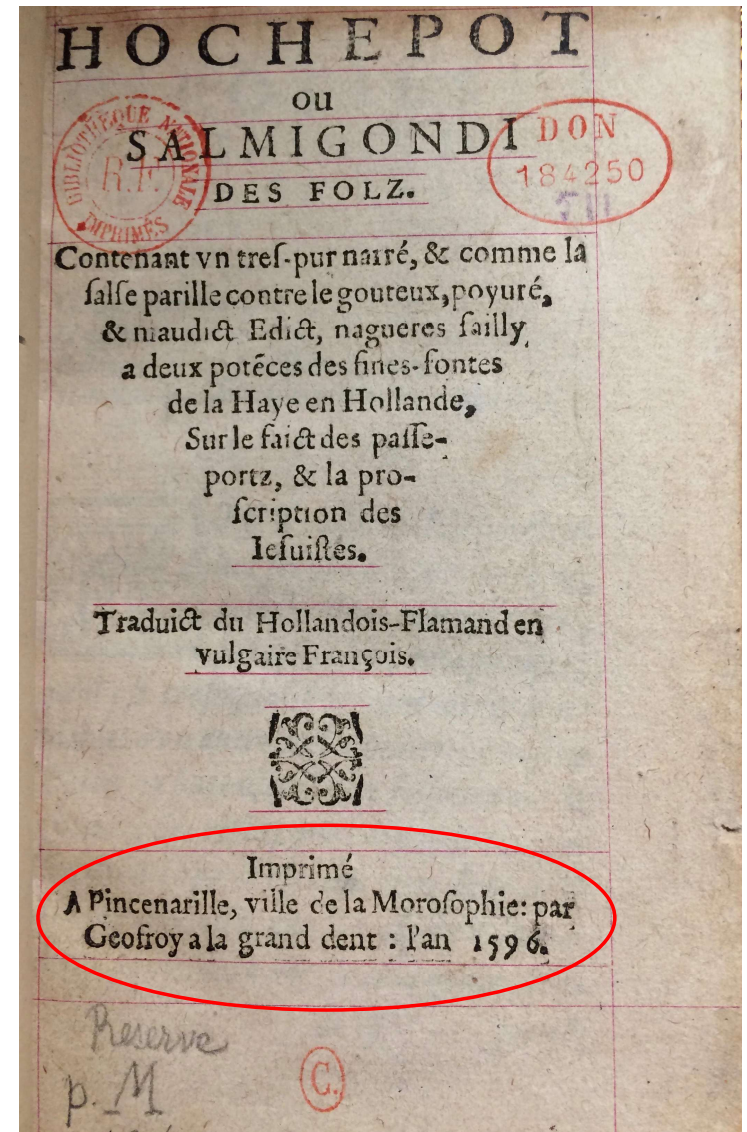 HOCHEPOT
OU
SALMIGONDI
DES FOLZ.
BIBLIOTHÈQUE NATIONALE
R.F.
IMPRIMÉS
DON
184250
Contenant vn treſ-pur narré, & comme la
ſalſe parille contre le gouteux, poyuré,
& maudict Edict, nagueres ſailly
a deux potẽces des fines-fontes
de la Haye en Hollande,
Sur le faict des paſſe-
portz, & la pro-
ſcription des
Ieſuiſtes.
Traduict du Hollandois-Flamand en
vulgaire François.
Imprimé
A Pincenarille, ville de la Moroſophie: par
Geofroy a la grand dent : l'an 1596.
Reserve
p. M
C.